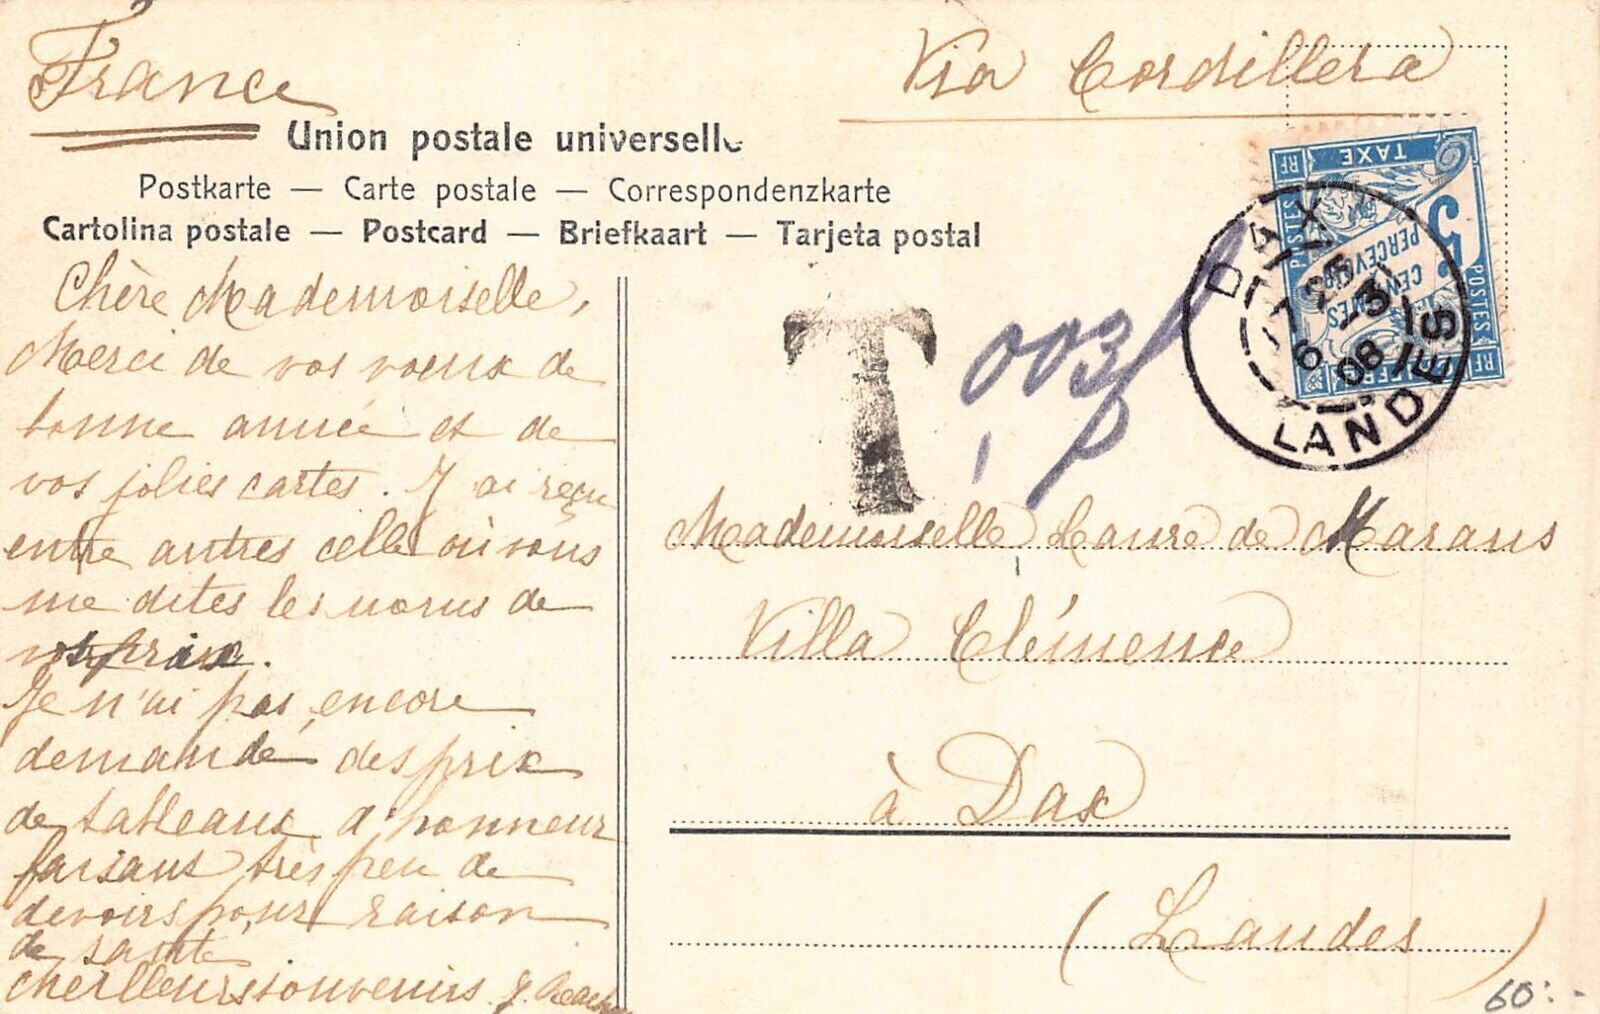 France
Via Cordillera
Union postale universelle
Postkarte — Carte postale — Correspondenzkarte
Cartolina postale — Postcard — Briefkaart — Tarjeta postal
Chère Mademoiselle,
Merci de vos voeux de
bonne année et de
vos jolies cartes. J'ai reçu
entre autres celle où vous
me dites les noms de
vos prix.
Je n'ai pas encore
demandé des prix
de tableaux d'honneur
faisant très peu de
devoirs pour raison
de santé
souvenirs J.
T
003
RF TAXE RF
POSTES
5
CENTIMES
À PERCEVOIR
POSTES
RF RF
DAX
6 -3
08
LANDES
Mademoiselle Laure de Marans
Villa Clémence
à Dax
(Landes)
60:-